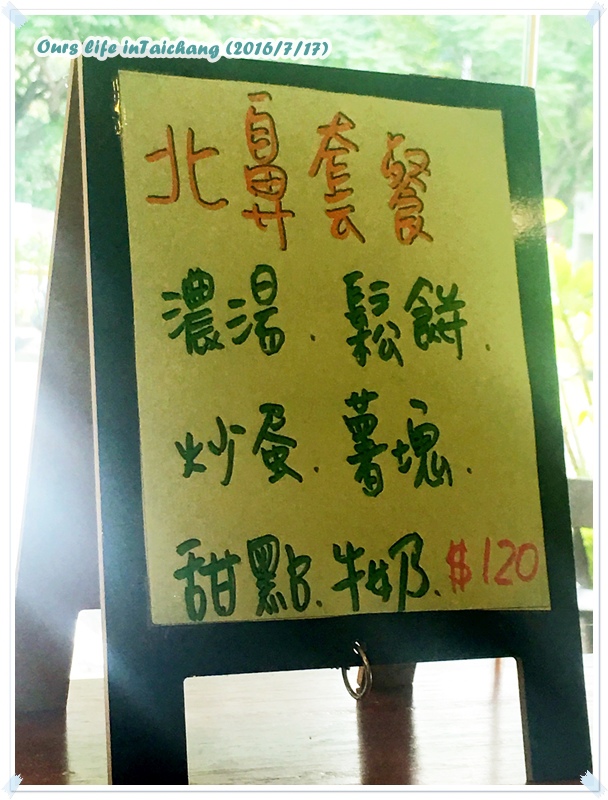 Ours life inTaichang (2016/7/17)
北鼻套餐
濃湯.鬆餅.
炒蛋.薯塊.
甜點.牛奶.$120